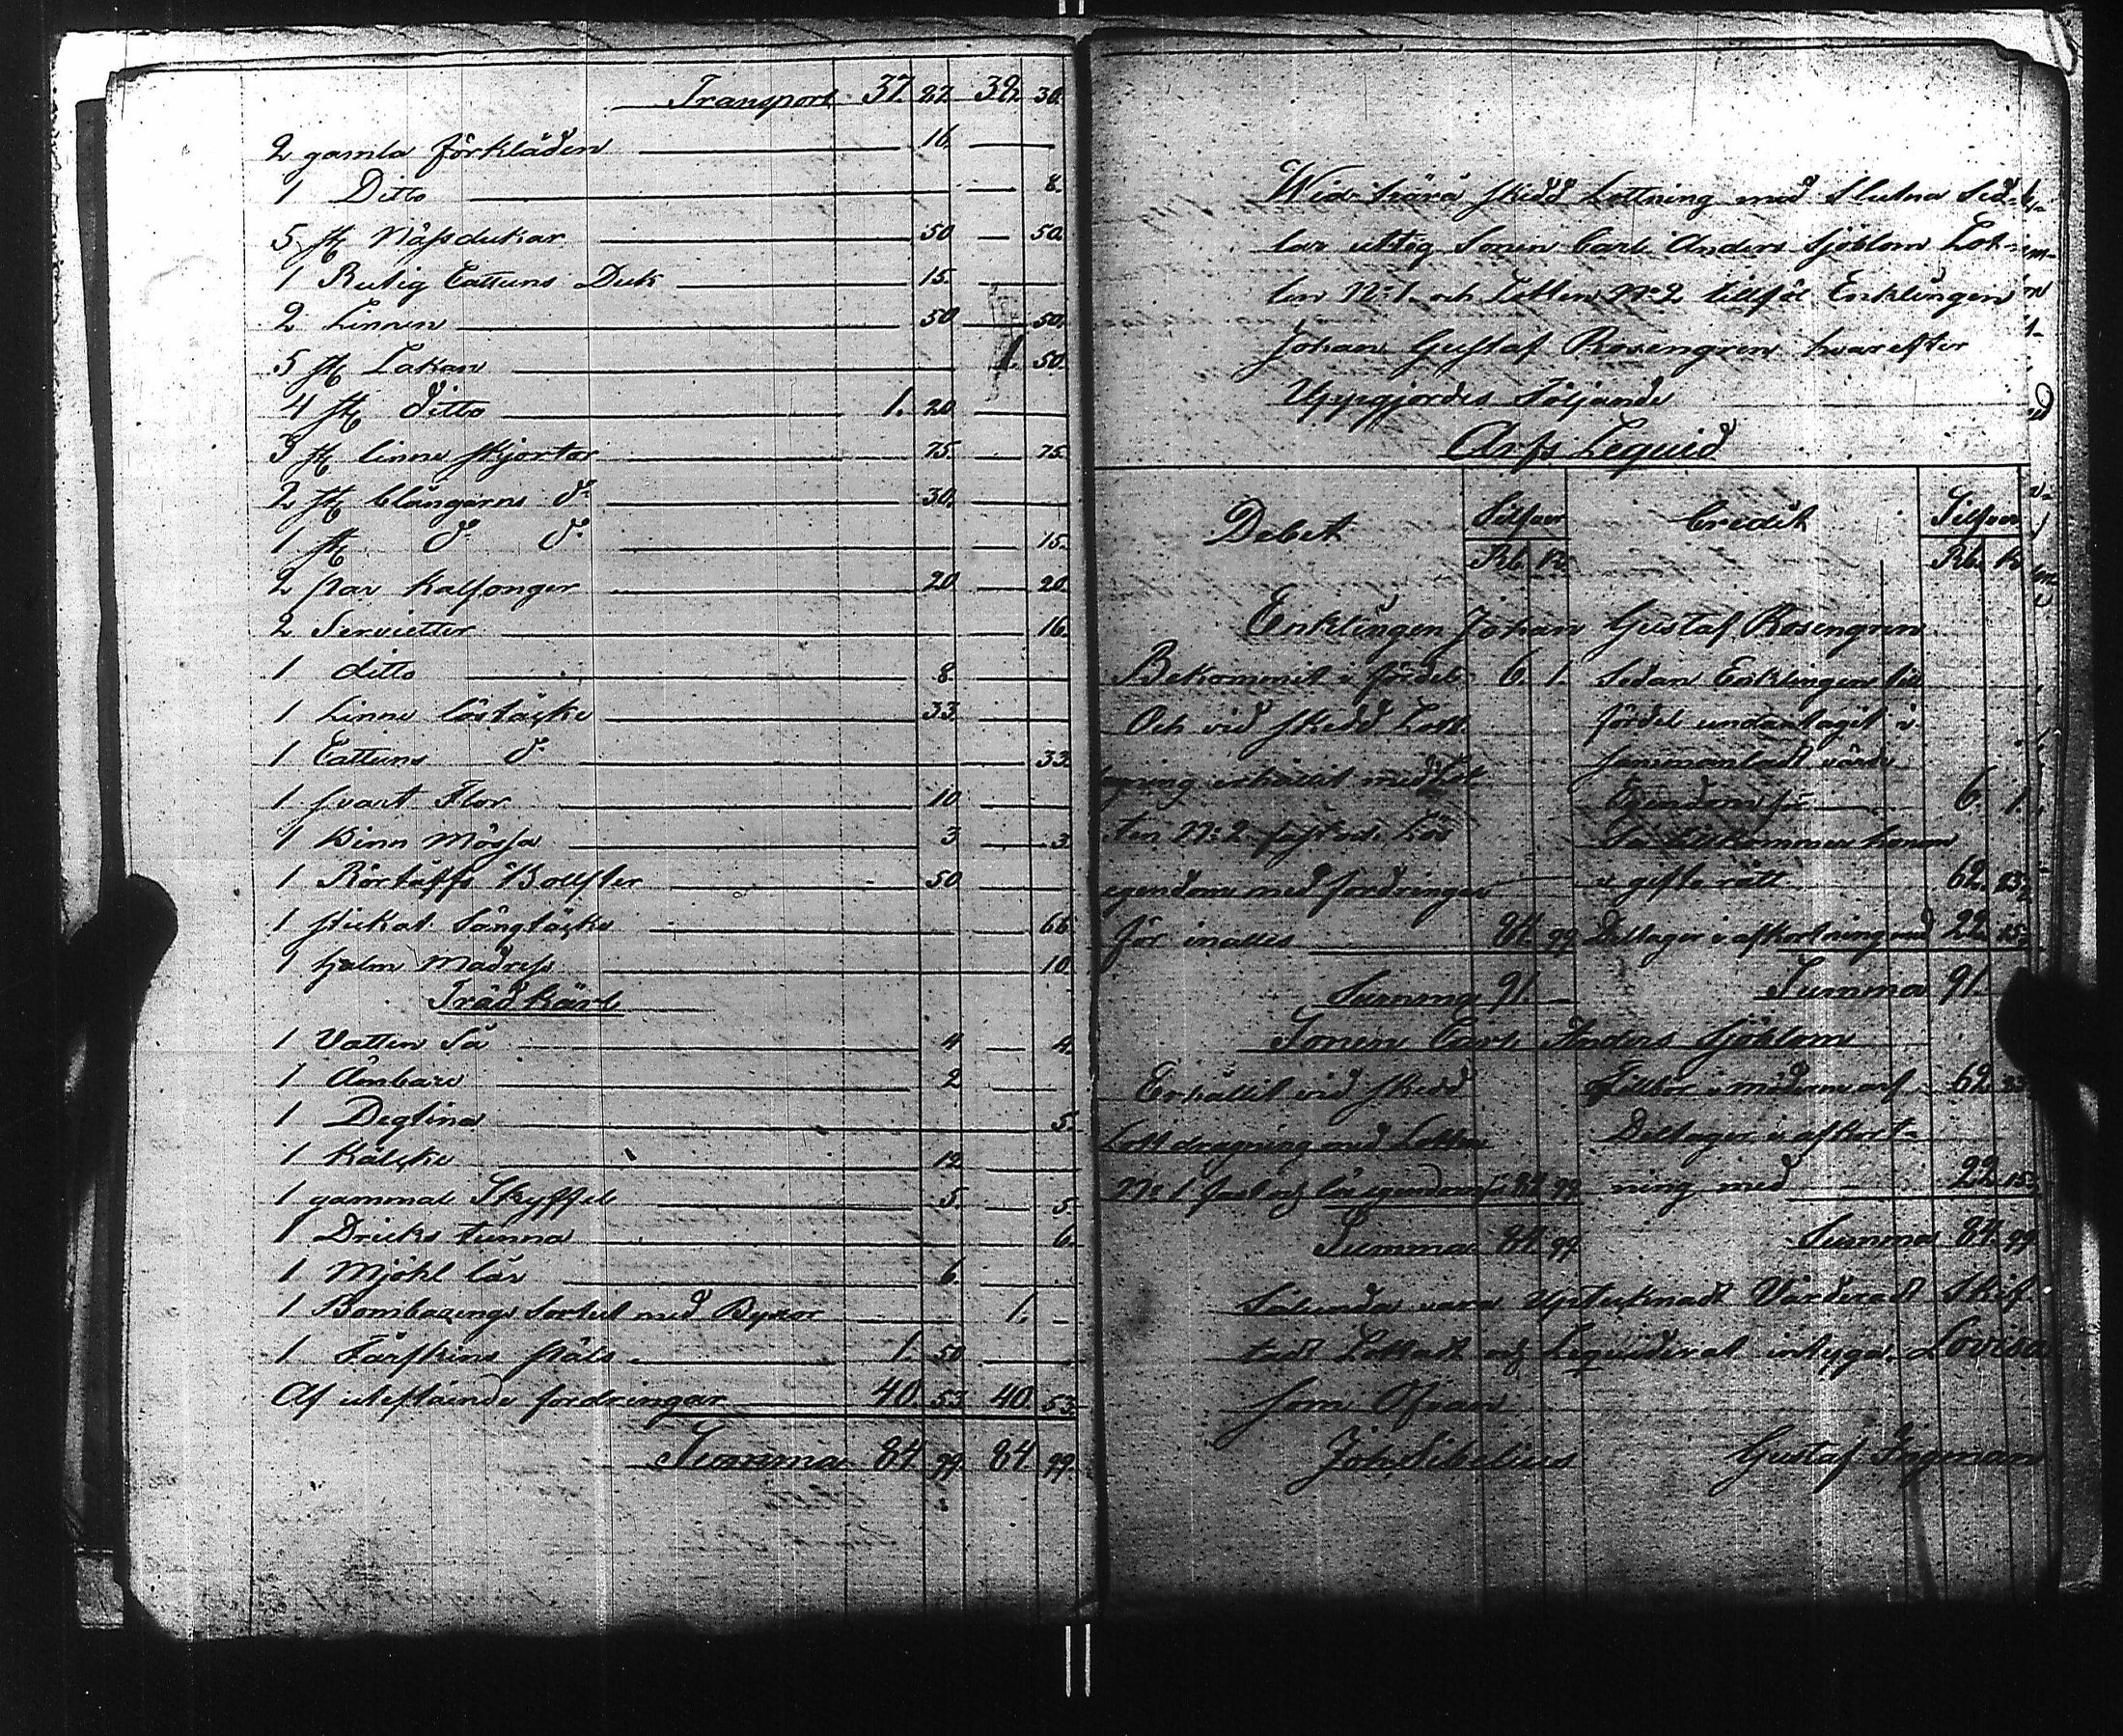 Transport 37. 27. 39. 30.
2 gamla Förkläden 16.
1 Ditto 8.
5 st Näsdukar 50 50.
1 Rutig Cattuns Duk 15.
2 Linnen 50 50.
5 st Lakan 1. 50.
4 st ditto 1. 20
3 st linne skjortor 75. 75.
2 st blångarns do 30.
1 st do do 15.
2 par Kalsonger 20 20.
2 Servietter 16.
1 ditto 8.
1 Linne löstäcke 33.
1 Cattuns do 33.
1 svart Flor 10
1 Binn Mössa 3 3.
1 Rörtäffs Bolster 50
1 stickat Sängtäcke 66.
1 halm Madrass 10
Trädkärl
1 Vatten Så 4 4.
1 Ämbare 2
1 Degtina 5.
1 Kälcke 12
1 gammal Skyffel 5. 5.
1 Dricks tunna 6.
1 Mjöhl lår 6
1 Bombazings Sortut med Byxor 1. -
1 Fårskins päls 1. 50
Af utestående fordringar 40. 53. 40. 53.
Summa 84 99. 84. 99.
Wid härå skedd Lottning med Slutna Sed-
lar uttog Sonen Carl Anders Sjöblom Lot-
ten No 1. och Lotten No 2 tillföl Enklingen
Johan Gustaf Rosengren hvarefter
Uppgjordes följande
Arfs Lequid
Debet Silfver Credit Silfver
Rb. K. Rb. K
Enklingen Johan Gustaf Rosengren
Bekommit i fördel 6. 1. Sedan Enklingen till
Och vid skedd Lott- fördel undantagit i
ning erhållit med Lot sammanladt värde
ten No 2 Lös Egendom för 6. 1.
egendom med fordringar Så tillkommer honom
i gifto rätt 62.
för inalles 84. 99 Deltager i afkortning med 22.
Summa 91. - Summa 91.
Sonen Carl Anders Sjöblom
Erhållit vid skedd Tillkr i möderne arf 62.
Lottdragning med Lotten Deltager i afkort-
No 1 fast och lös egendom 84 99 ning med 22. 15
Summa 84 99. Summa 84. 99
Sålunda vara Upteknadt Värderadt Skif-
tadt Lottadt och Lequiderat intygar Lovisa
som Ofvan
Joh Sibelius Gustaf Ingman